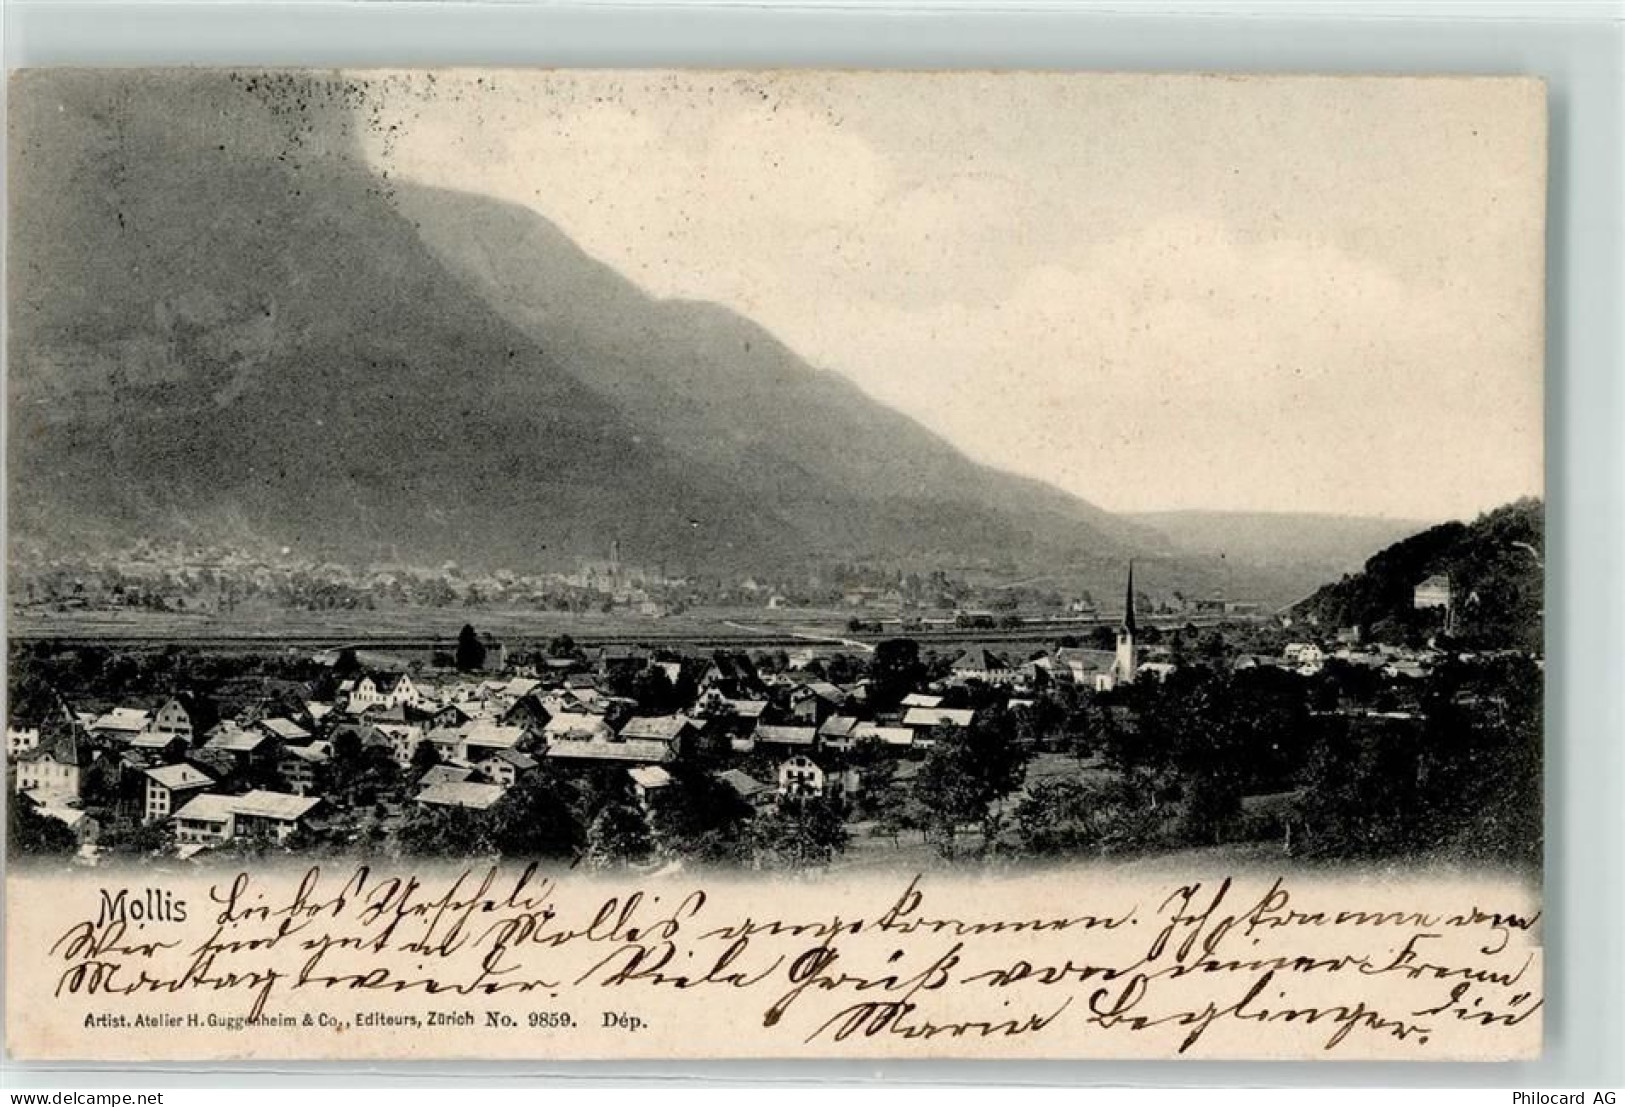 Mollis
Liebes Urscheli.
Wir sind gut in Mollis angekommen. Ich komme am
Montag wieder. Viele Grüß von deiner Freun
din
Maria Beglinger.
Artist. Atelier H. Guggenheim & Co., Editeurs, Zürich No. 9859. Dép.
www.delcampe.net
Philocard AG